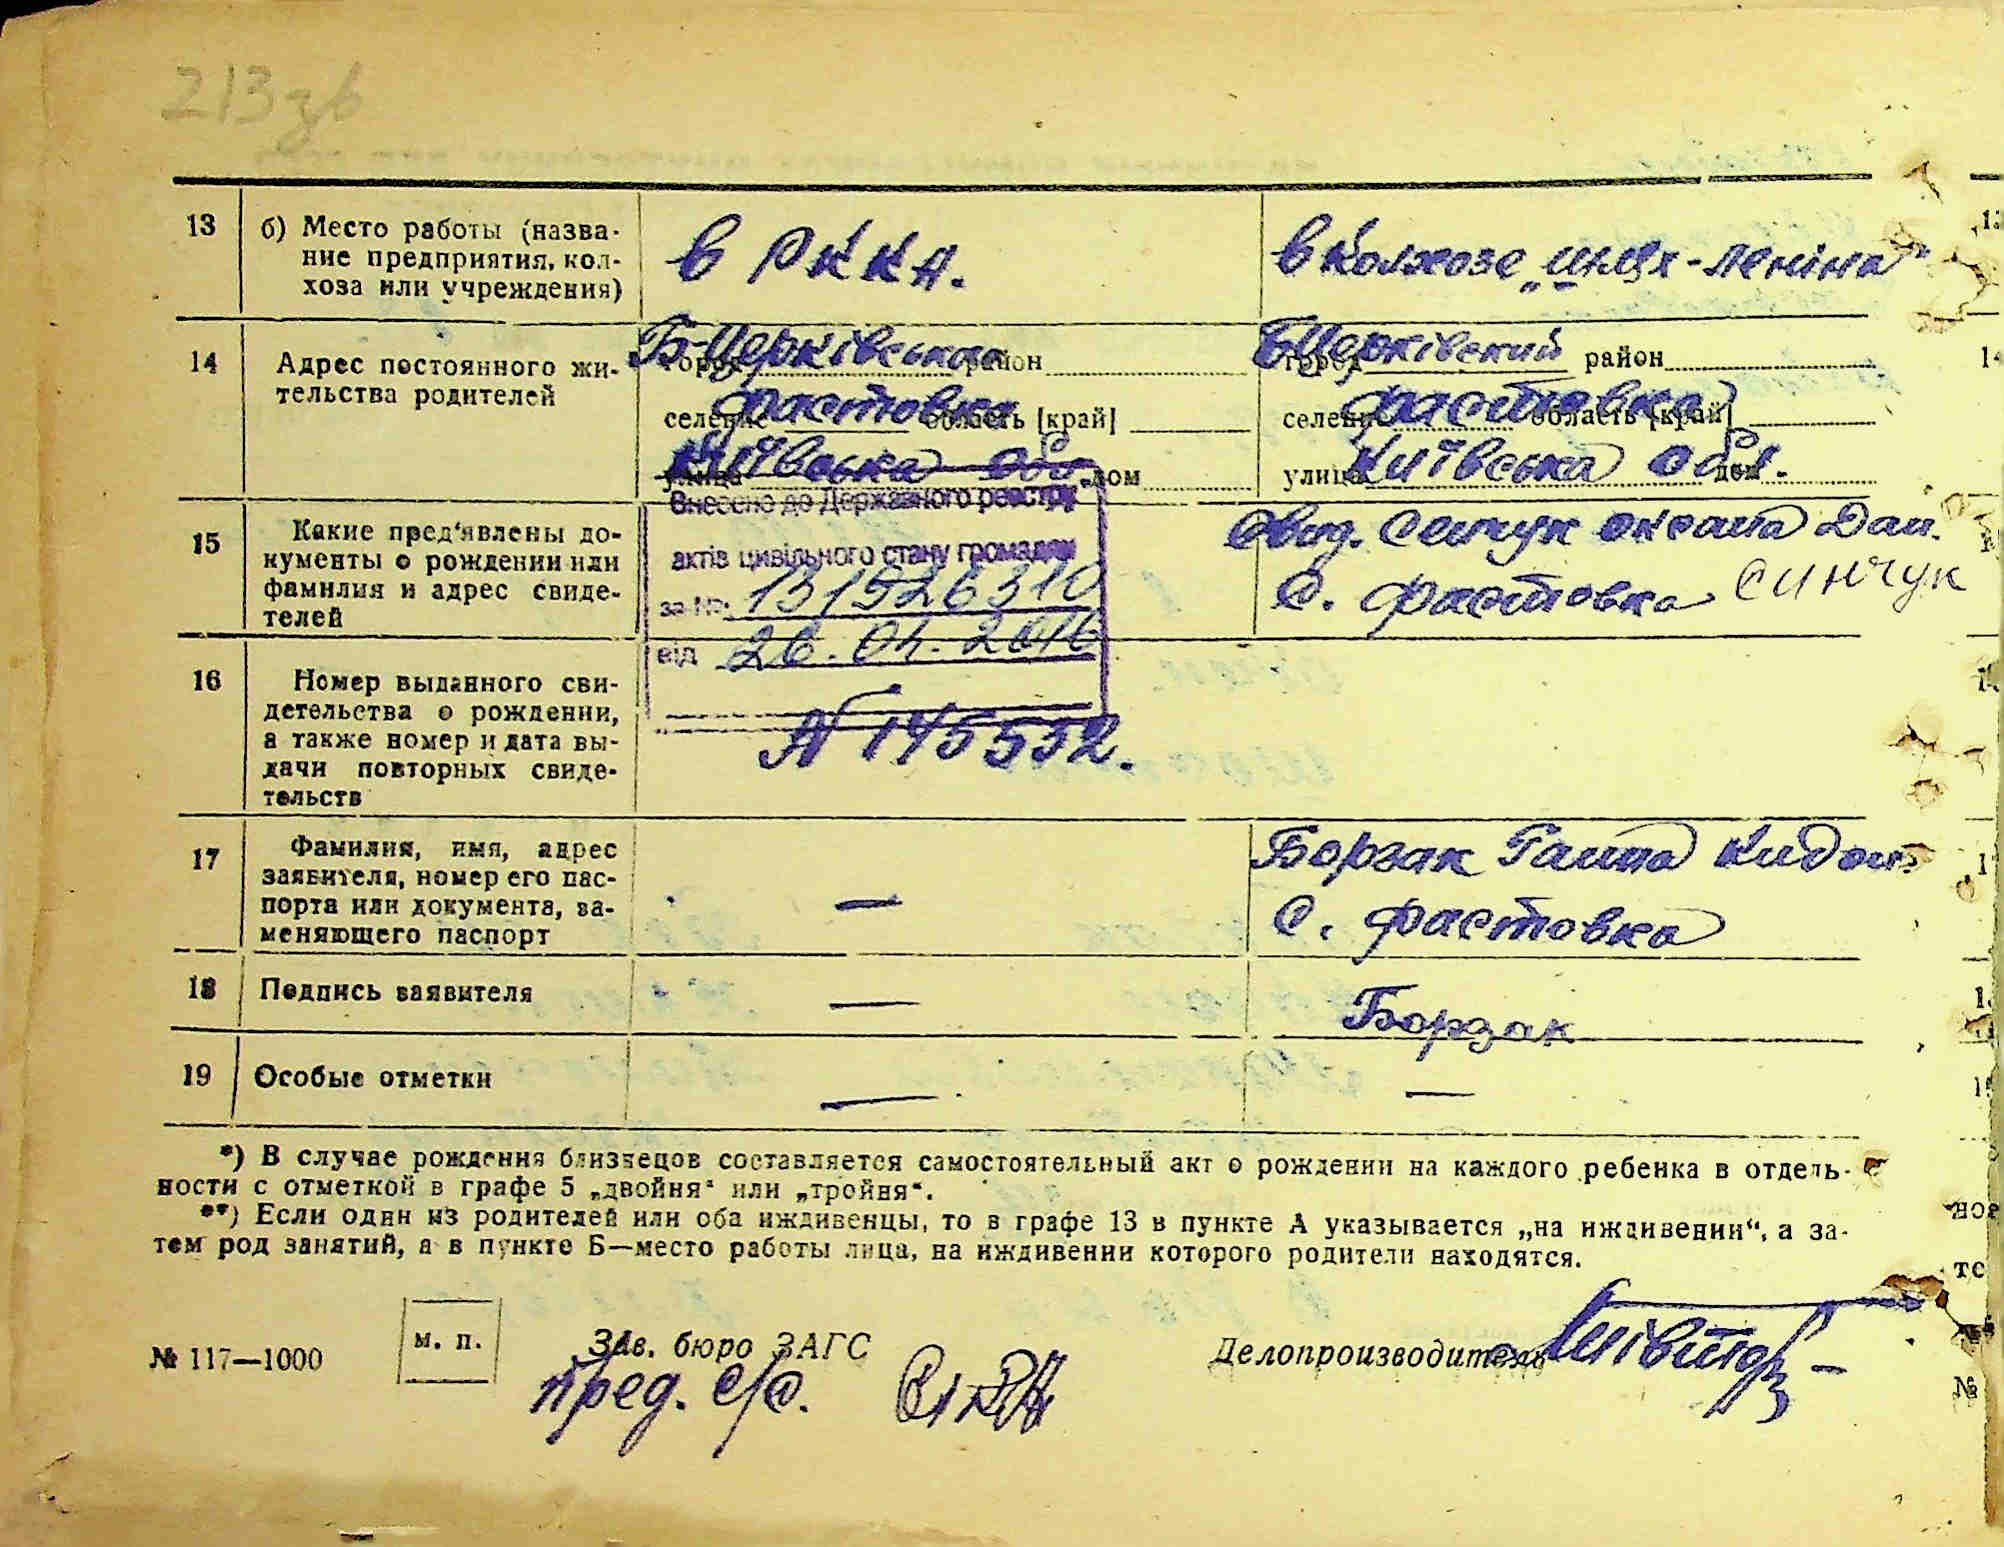 213зв
13
б) Место работы (назва-
ние предприятия, кол-
хоза или учреждения)
в РККА.
в Колхозе „Шлях-Леніна"
14
Адрес постоянного жи-
тельства родителей
Б-Церківська
город район
Фастовка
селение область [край]
Київська обл.
улица дом
БЦерківский
город район
Фастовка
селение область [край]
Київська обл.
улица дом
Внесено до Державного реєстру
актів цивільного стану громадян
за № 131526310
від 26.04.2016
15
Какие пред'явлены до-
кументы о рождении или
фамилия и адрес свиде-
телей
Свид. Сенчук Оксана Дан.
С. Фастовка Синчук
16
Номер выданного сви-
детельства о рождении,
а также номер и дата вы-
дачи повторных свиде-
тельств
N 145532.
17
Фамилия, имя, адрес
заявителя, номер его пас-
порта или документа, за-
меняющего паспорт
—
Борзак Ганна
С. Фастовка
18
Подпись заявителя
—
Борзак
19
Особые отметки
—
—
*) В случае рождения близнецов составляется самостоятельный акт о рождении на каждого ребенка в отдель-
ности с отметкой в графе 5 „двойня" или „тройня".
**) Если один из родителей или оба иждивенцы, то в графе 13 в пункте А указывается „на иждивении", а за-
тем род занятий, а в пункте Б—место работы лица, на иждивении которого родители находятся.
№ 117—1000
м. п.
Зав. бюро ЗАГС
пред. с/с.
Делопроизводитель